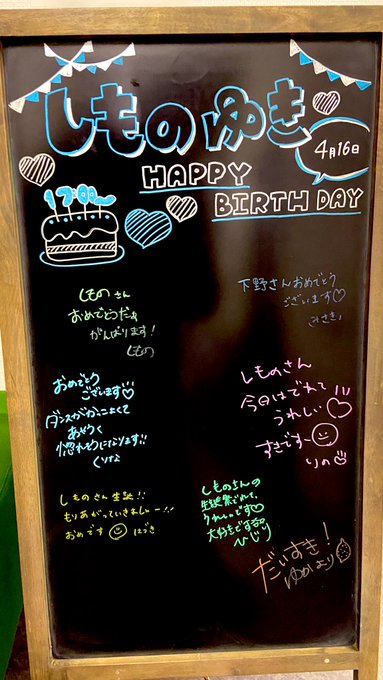 しものゆき
4月16日
HAPPY
BIRTH DAY
しものさん
おめでとうだぁ
がんばります!
しもの
下野さんおめでとう
ございます♡
みさき
おめでとう
ございます♡
ダンスがかっこよくて
あやうく
惚れそうになります!!
くりな
しものさん
今日はでれて
うれしい♡
すきですー
りの
しものさん生誕!!
もりあがっていきましょー!!
おめです
はづき
しものさんの
生誕祭でれて、
うれしいです♡
大好きです
ひじり
だいすき!
ゆめより